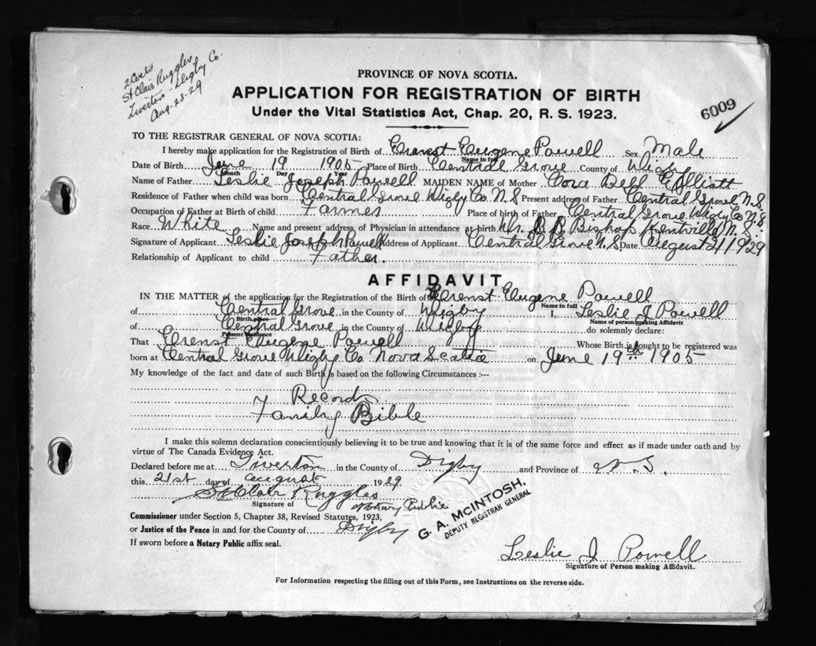 2 Certs
St Clair Ruggles
Tiverton Digby Co.
Aug-23-29
PROVINCE OF NOVA SCOTIA.
APPLICATION FOR REGISTRATION OF BIRTH
Under the Vital Statistics Act, Chap. 20, R. S. 1923.
6009
TO THE REGISTRAR GENERAL OF NOVA SCOTIA:
I hereby make application for the Registration of Birth of Ernest Eugene Powell Sex Male
Name in full
Date of Birth June 19 1905 Place of Birth Central Grove County of Digby
Month Day Year
Name of Father Leslie Joseph Powell MAIDEN NAME of Mother Cora Bell Elliott
Residence of Father when child was born Central Grove Digby Co. N S Present address of Father Central Grove N S
Occupation of Father at Birth of child Farmer Place of birth of Father Central Grove Digby Co N S
Race White Name and present address of Physician in attendance at birth Dr. Bishop Kentville N. S.
Signature of Applicant Leslie Joseph Powell Address of Applicant Central Grove N. S Date August 21 1929
Relationship of Applicant to child Father.
AFFIDAVIT
IN THE MATTER of the application for the Registration of the Birth of Ernest Eugene Powell
Name in full
of Central Grove in the County of Digby I, Leslie J Powell
Birth place Name of person making Affidavit
of Central Grove in the County of Digby do solemnly declare:
Present residence
That Ernest Eugene Powell Whose Birth is sought to be registered was
born at Central Grove Digby Co Nova Scotia on June 19th 1905
My knowledge of the fact and date of such Birth is based on the following Circumstances :—
Record
Family Bible
I make this solemn declaration conscientiously believing it to be true and knowing that it is of the same force and effect as if made under oath and by
virtue of The Canada Evidence Act.
Declared before me at Tiverton in the County of Digby and Province of N. S.
this 21st day of August 1929
St Clair Ruggles
Signature of Notary Public
Commissioner under Section 5, Chapter 38, Revised Statutes, 1923,
or Justice of the Peace in and for the County of Digby
If sworn before a Notary Public affix seal.
G. A. McINTOSH,
DEPUTY REGISTRAR GENERAL
Leslie J Powell
Signature of Person making Affidavit.
For Information respecting the filling out of this Form, see Instructions on the reverse side.